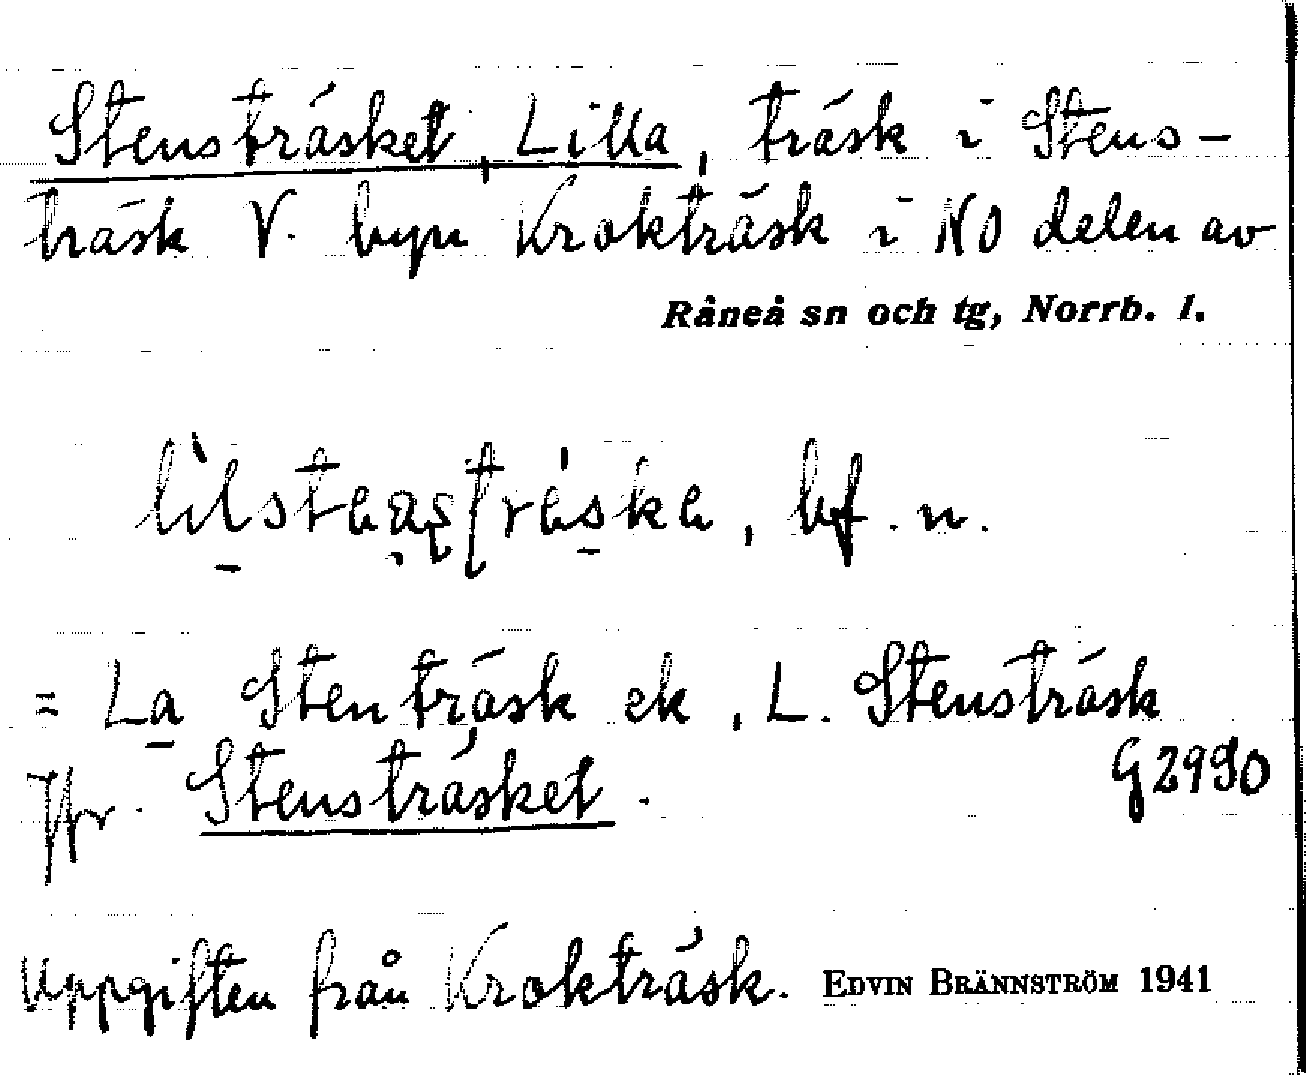 Stensträsket, Lilla, träsk i Stens-
träsk V. byn Krokträsk i NO delen av
Råneå sn och tg, Norrb. l.
bf. n.
= La Stenträsk ek, L. Stensträsk
G2990
Jfr. Stensträsket.
Uppgiften från Krokträsk. EDVIN BRÄNNSTRÖM 1941